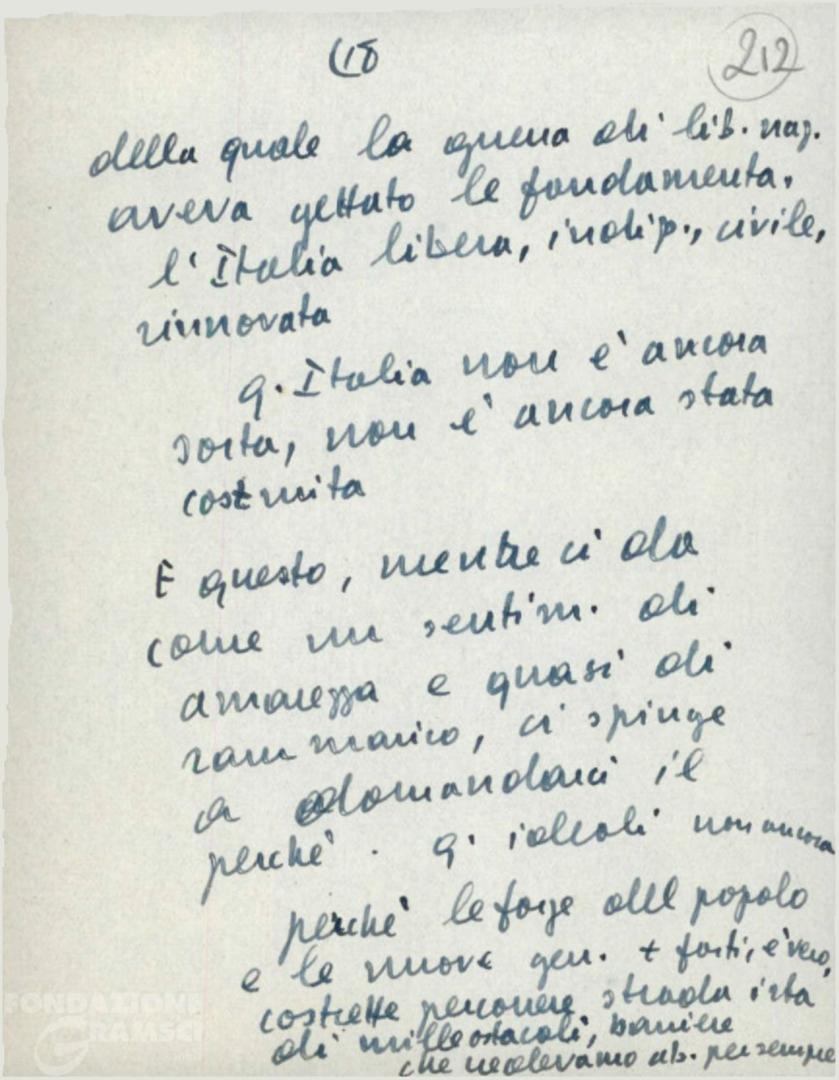 (18
212
della quale la guerra di lib. naz.
aveva gettato le fondamenta.
l'Italia libera, indip., civile,
rinnovata
q. Italia non è ancora
sorta, non è ancora stata
costruita
E questo, mentre ci da
come un sentim. di
amarezza e quasi di
rammarico, ci spinge
a domandarci il
perchè. q. ideali non ancora
perchè le forze del popolo
e le nuove gen. + forti, è vero,
costrette percorrere strada irta
di mille ostacoli, barriere
che credevamo ab. per sempre
FONDAZIONE
GRAMSCI